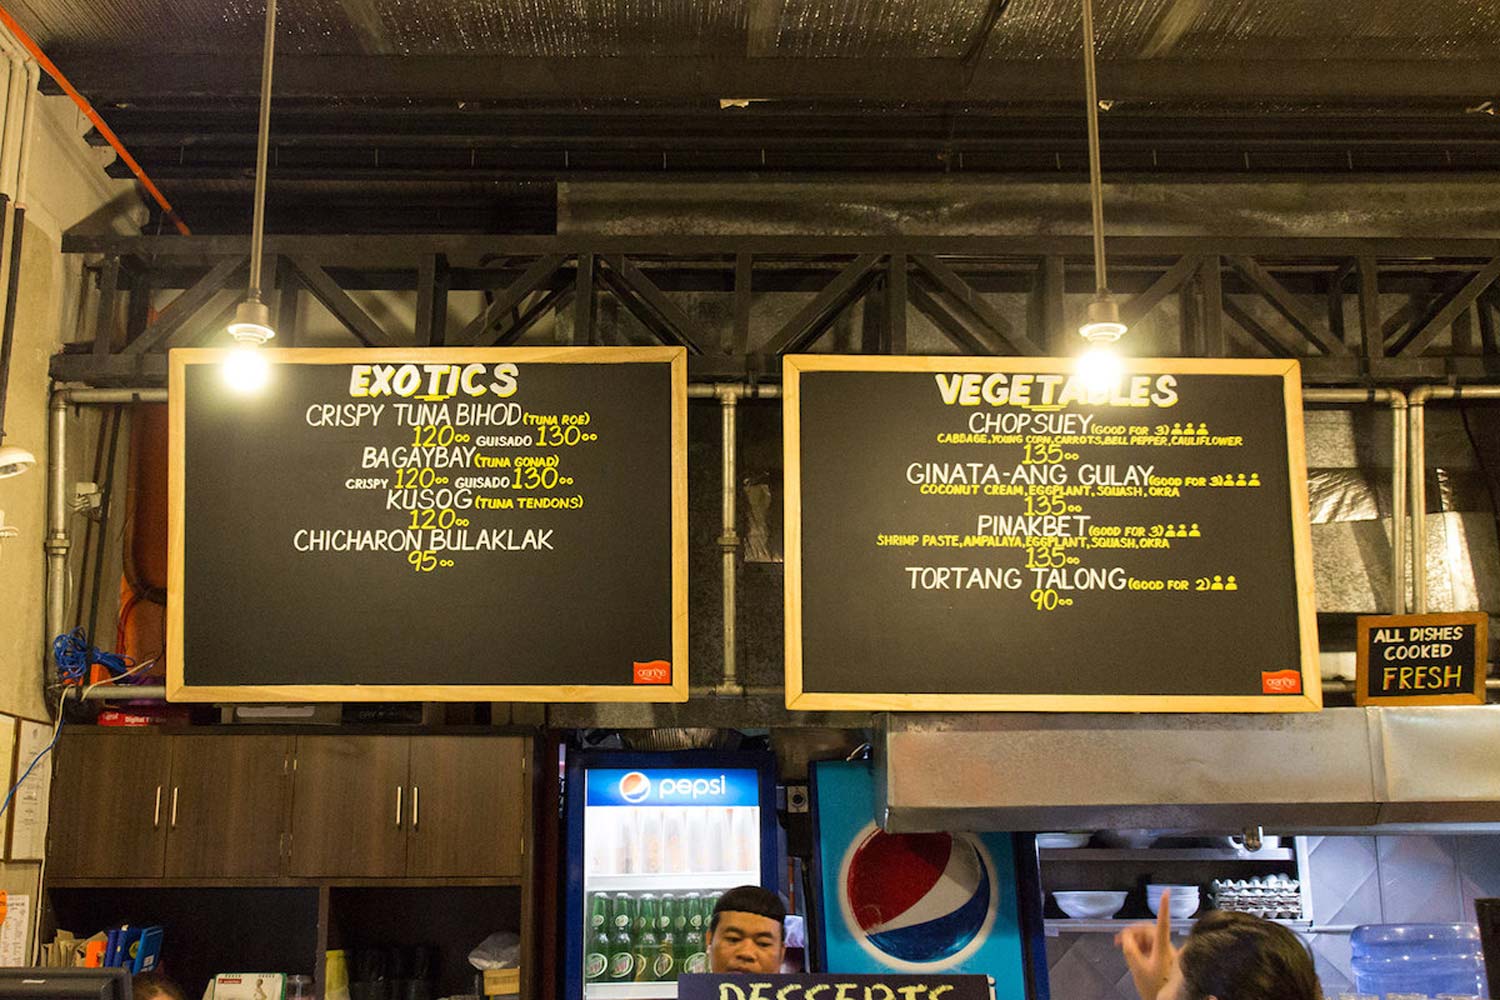 EXOTICS
CRISPY TUNA BIHOD (TUNA ROE)
120.00 GUISADO 130.00
BAGAYBAY (TUNA GONAD)
CRISPY 120.00 GUISADO 130.00
KUSOG (TUNA TENDONS)
120.00
CHICHARON BULAKLAK
95.00
orange
VEGETABLES
CHOPSUEY (GOOD FOR 3)
CABBAGE, YOUNG CORN, CARROTS, BELL PEPPER, CAULIFLOWER
135.00
GINATA-ANG GULAY (GOOD FOR 3)
COCONUT CREAM, EGGPLANT, SQUASH, OKRA
135.00
PINAKBET (GOOD FOR 3)
SHRIMP PASTE, AMPALAYA, EGGPLANT, SQUASH, OKRA
135.00
TORTANG TALONG (GOOD FOR 2)
90.00
orange
ALL DISHES
COOKED
FRESH
Digital TV
pepsi
DESSERTS